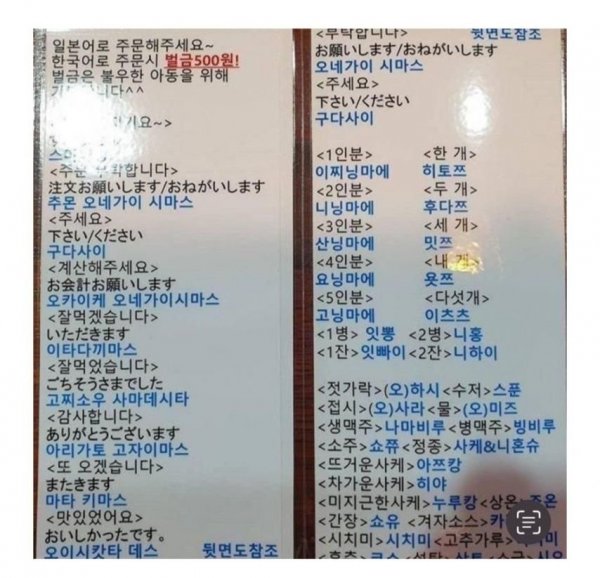 일본어로 주문해주세요~
한국어로 주문시 벌금500원!
벌금은 불우한 아동을 위해
니다^^
기요~>
<주문 부탁합니다>
注文お願いします/おねがいします
주몬 오네가이 시마스
<주세요>
下さい/ください
구다사이
<계산해주세요>
お会計お願いします
오카이케 오네가이시마스
<잘먹겠습니다>
いただきます
이타다끼마스
<잘먹었습니다>
ごちそうさまでした
고찌소우 사마데시타
<감사합니다>
ありがとうございます
아리가토 고자이마스
<또 오겠습니다>
またきます
마타 키마스
<맛있었어요>
おいしかったです。
오이시캇타 데스 뒷면도참조
<부탁합니다> 뒷면도참조
お願いします/おねがいします
오네가이 시마스
<주세요>
下さい/ください
구다사이
<1인분> <한 개>
이찌닝마에 히토쯔
<2인분> <두 개>
니닝마에 후다쯔
<3인분> <세 개>
산닝마에 밋쯔
<4인분> <내 개>
요닝마에 욧쯔
<5인분> <다섯개>
고닝마에 이츠츠
<1병> 잇뽕 <2병> 니홍
<1잔> 잇빠이 <2잔> 니하이
<젓가락>(오)하시 <수저> 스푼
<접시>(오)사라 <물>(오)미즈
<생맥주>나마비루 <병맥주>빙비루
<소주> 쇼쮸 <정종> 사케&니혼슈
<뜨거운사케> 아쯔캉
<차가운사케> 히야
<미지근한사케> 누루캉 <상온>
<간장> 쇼유 <겨자소스>
<시치미> 시치미 <고추가루>